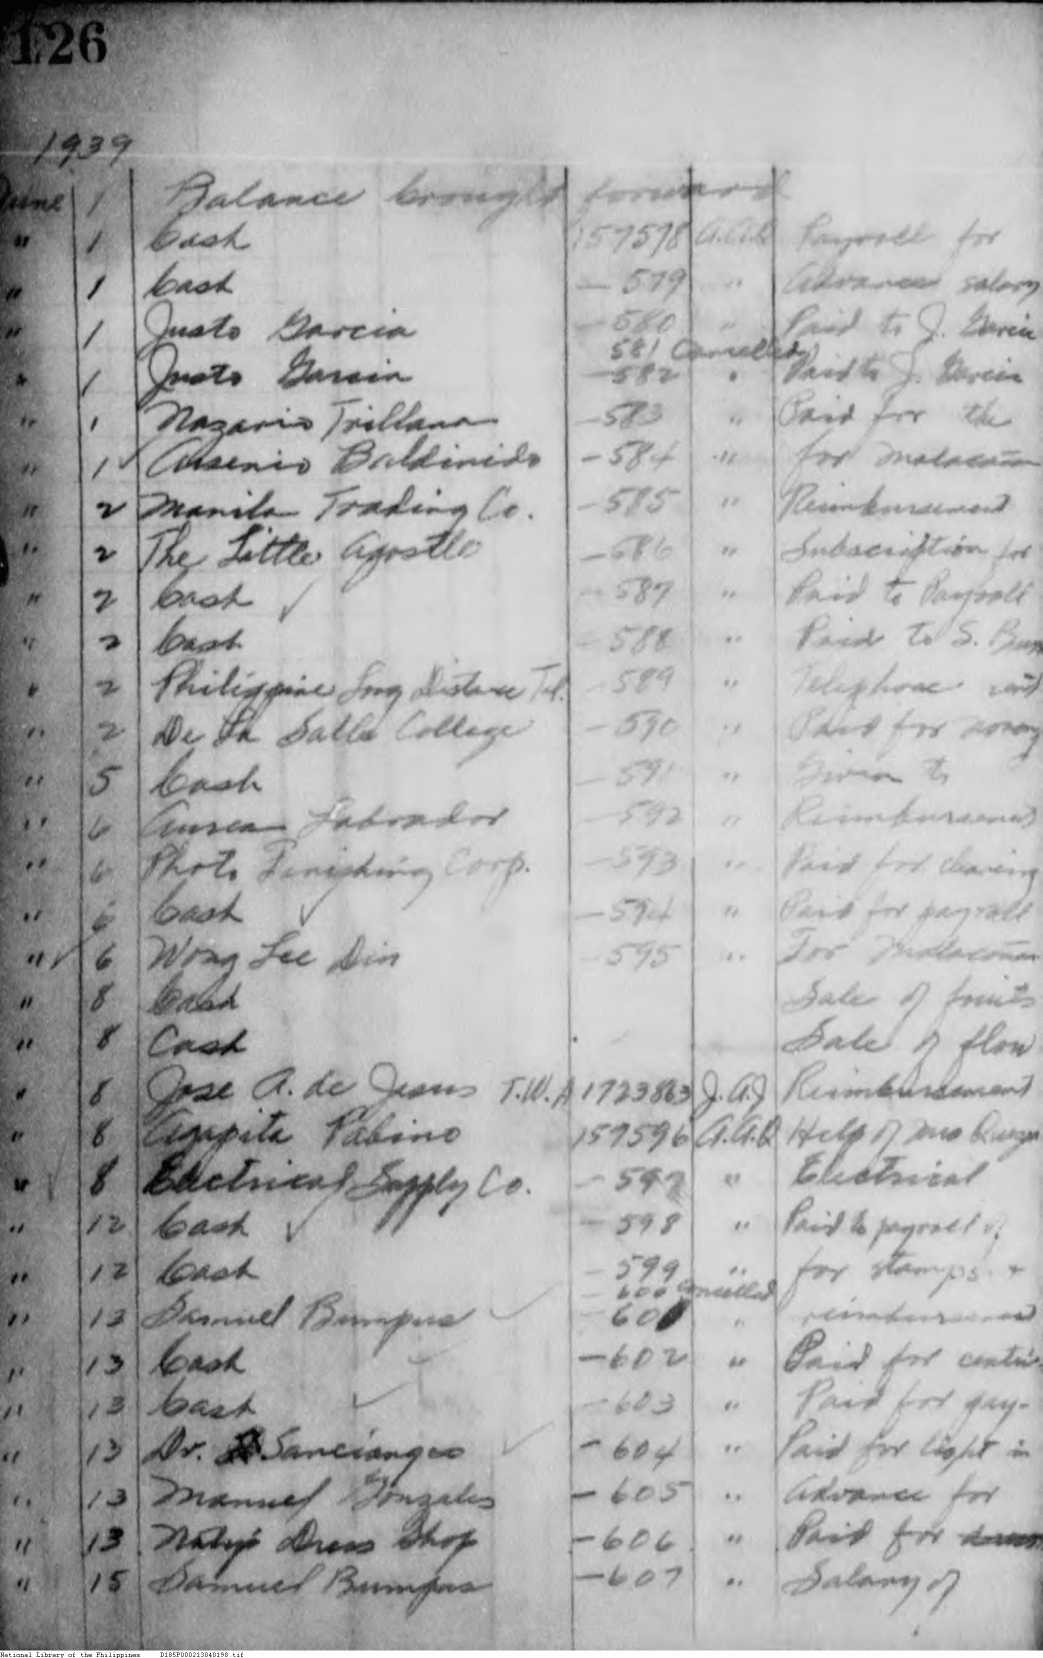 126
1939
June 1 Balance brought forward
" 1 Cash 157578 A.A.Q Payroll for
" 1 Cash - 579 " Advance salary
" 1 Justo Garcia - 580 " Paid to J. Garcia
581 Cancelled
" 1 Justo Garcia - 582 " Paid to J. Garcia
" 1 Nazario Trillana - 583 " Paid for the
" 1 Arsenio Baldinido - 584 " for Malacañan
" 2 Manila Trading Co. - 585 " Reimbursement
" 2 The Little Apostle - 586 " Subscription for
" 2 Cash - 587 " Paid to Payroll
" 2 Cash - 588 " Paid to S. Bum
" 2 Philippine Long Distance Tel. - 589 " Telephone
" 2 De La Salle College - 590 " Paid for
" 5 Cash - 591 " Given to
" 6 Aurea Labrador - 592 " Reimbursement
" 6 Photo Finishing Corp. - 593 " Paid for cleaning
" 6 Cash - 594 " Paid for payroll
" 6 Wong Lee Din - 595 " For Malacañan
" 8 Cash Sale of fruits
" 8 Cash Sale of flow
" 8 Jose A. de Jesus T.W.A 1723863 J.A.J Reimbursement
" 8 Agapita Pabino 157596 A.A.Q Help of Mrs
" 8 Electrical Supply Co. - 597 " Electrical
" 12 Cash - 598 " Paid to payroll of
" 12 Cash - 599 " for stamps +
- 600 Cancelled
" 13 Samuel Bumpus - 601 " reimbursement
" 13 Cash - 602 " Paid for
" 13 Cash - 603 " Paid for pay-
" 13 Dr. Sanciangco - 604 " Paid for light in
" 13 Manuel Gonzales - 605 " Advance for
" 13 Naty's Dress Shop - 606 " Paid for
" 15 Samuel Bumpus - 607 " Salary of
National Library of the Philippines D185P000213040190.tif